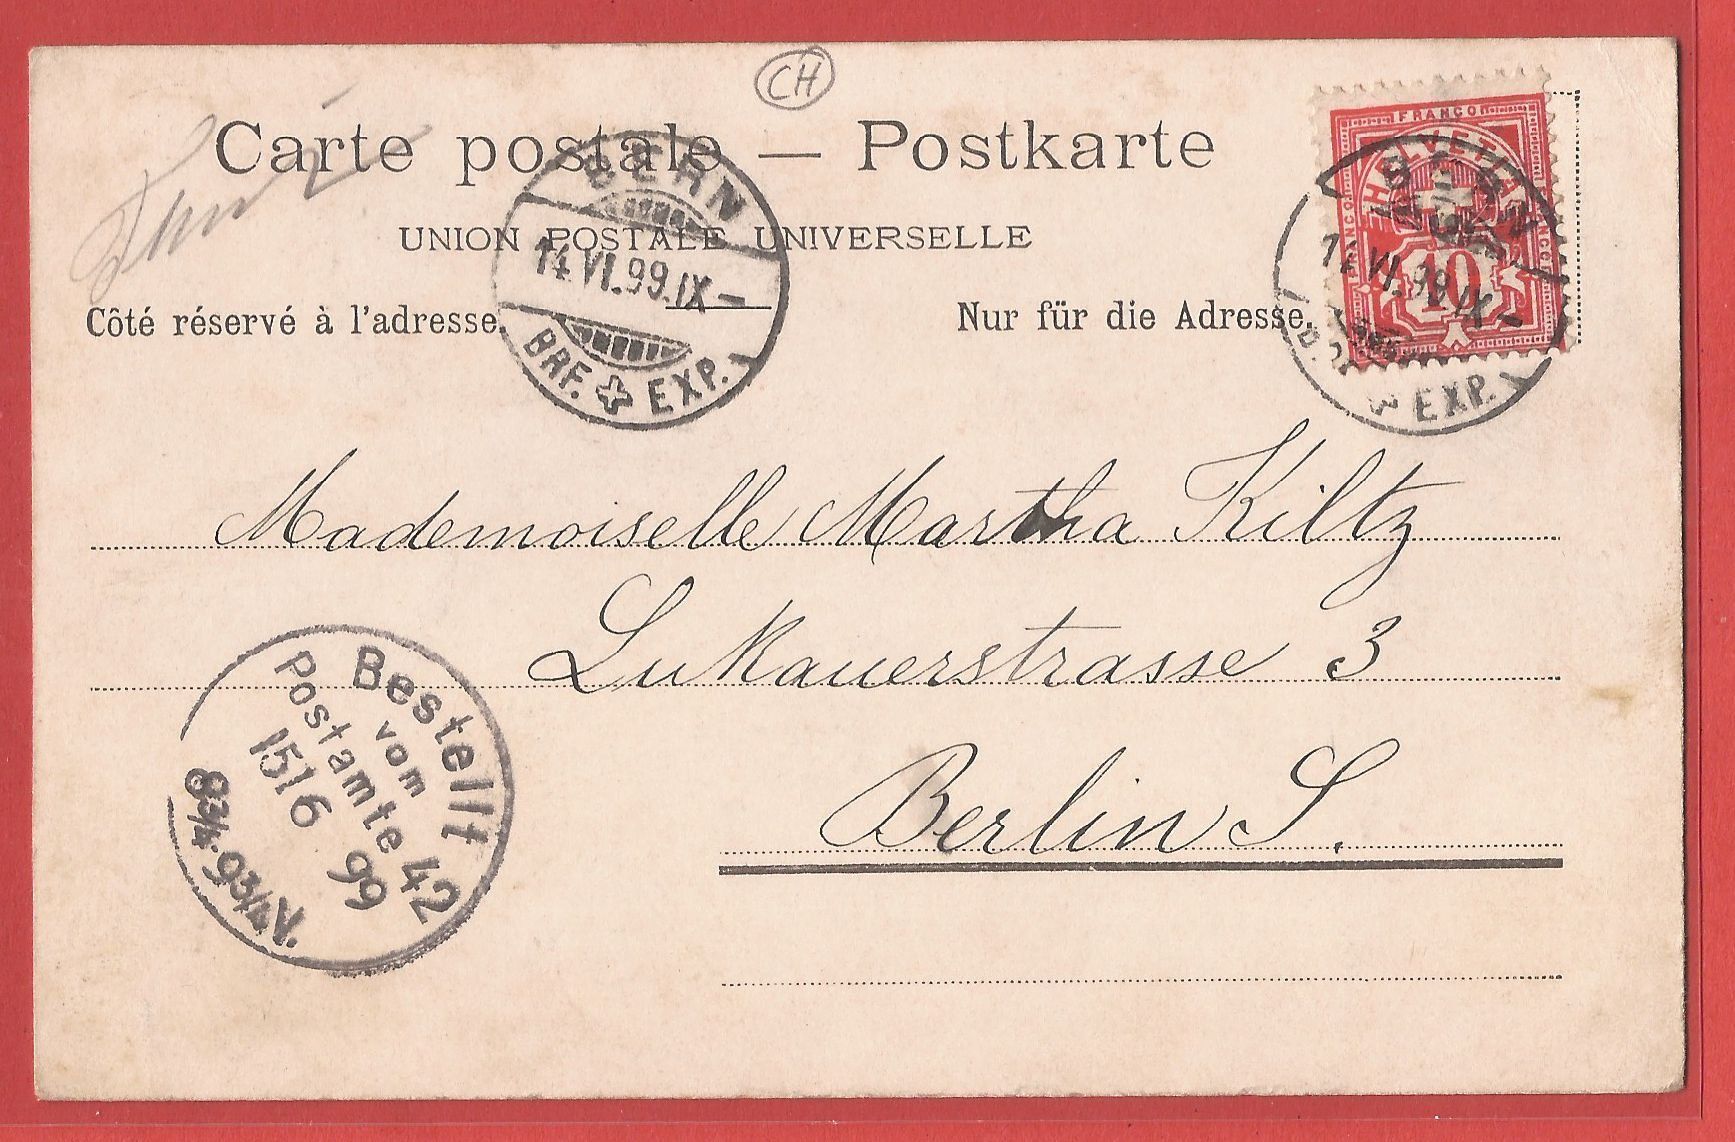 CH
Carte postale — Postkarte
UNION POSTALE UNIVERSELLE
Côté réservé à l'adresse.
Nur für die Adresse.
BERN
14.VI.99.IX–
BRF. EXP.
FRANCO
HELVETIA
FRANCO
FRANCO
10
BERN
14.VI.99.IX–
EXP.
Mademoiselle Martha Kiltz
Lukauerstrasse 3
Berlin S.
Bestellt
vom
Postamte 42
15 6 99
8 3/4-9 3/4 V.